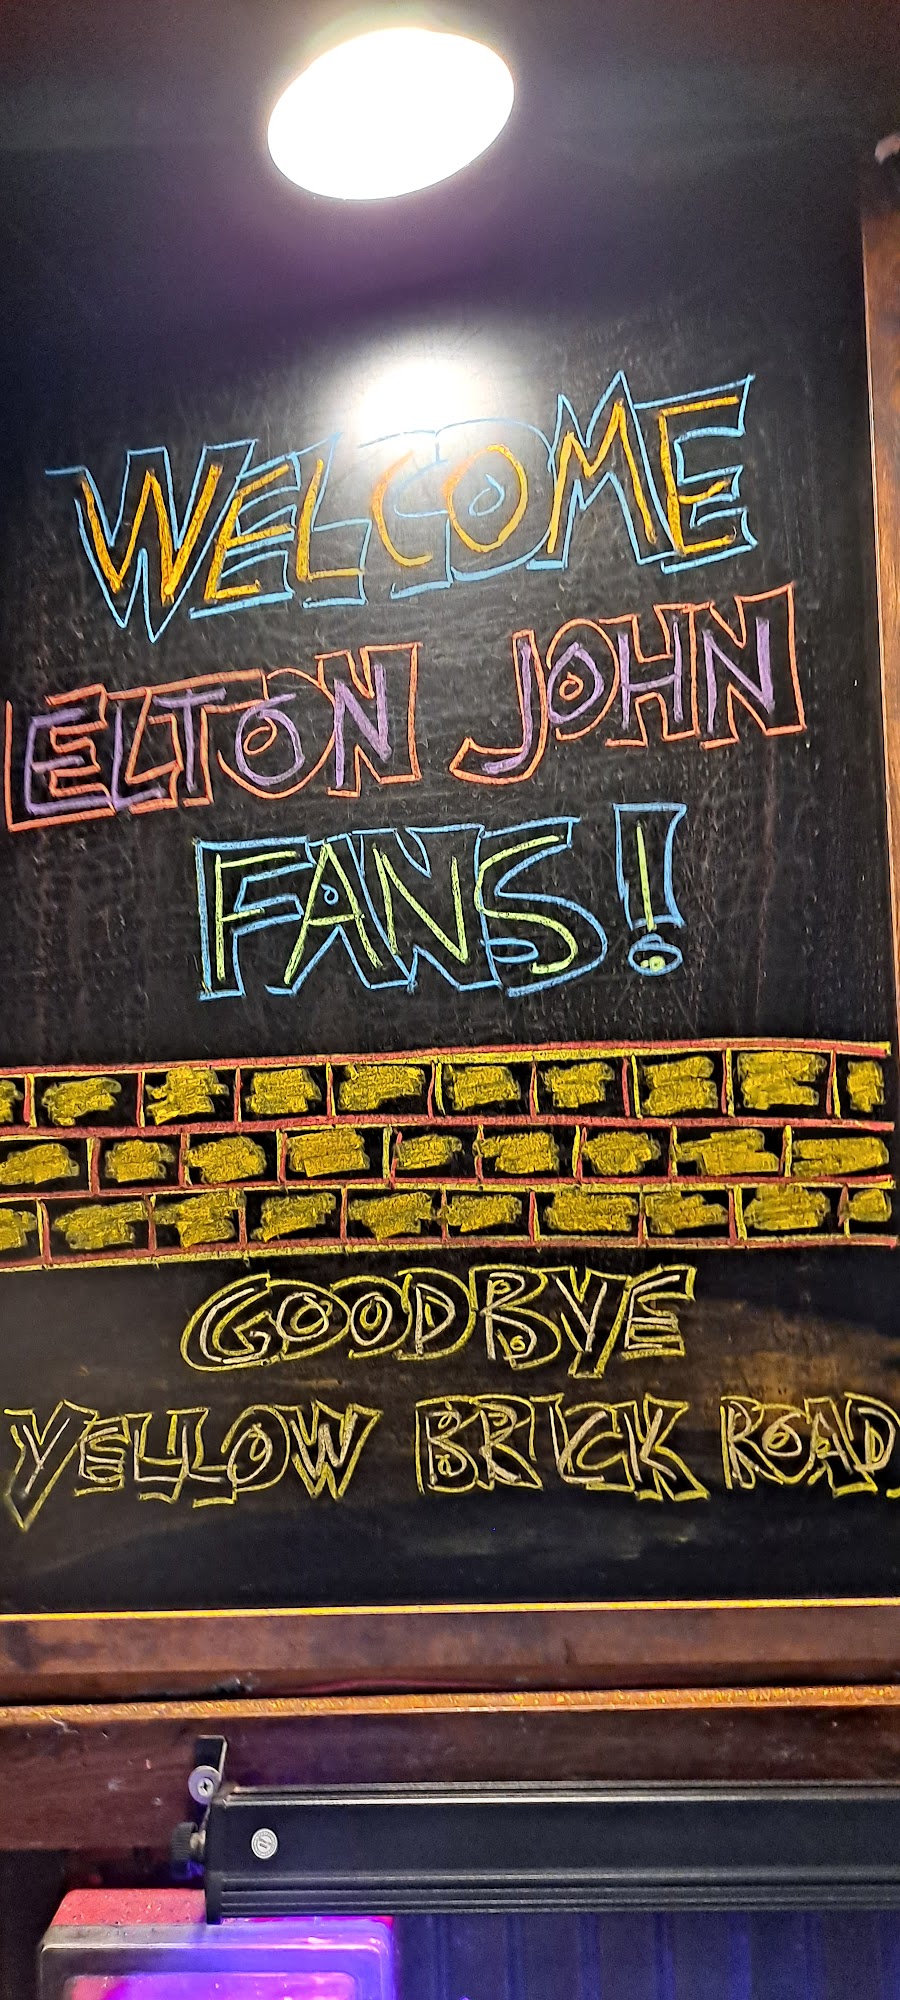 WELCOME
ELTON JOHN
FANS!
GOODBYE
YELLOW BRICK ROAD